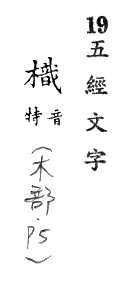 19五經文字
樴
特音
（木部·P5）